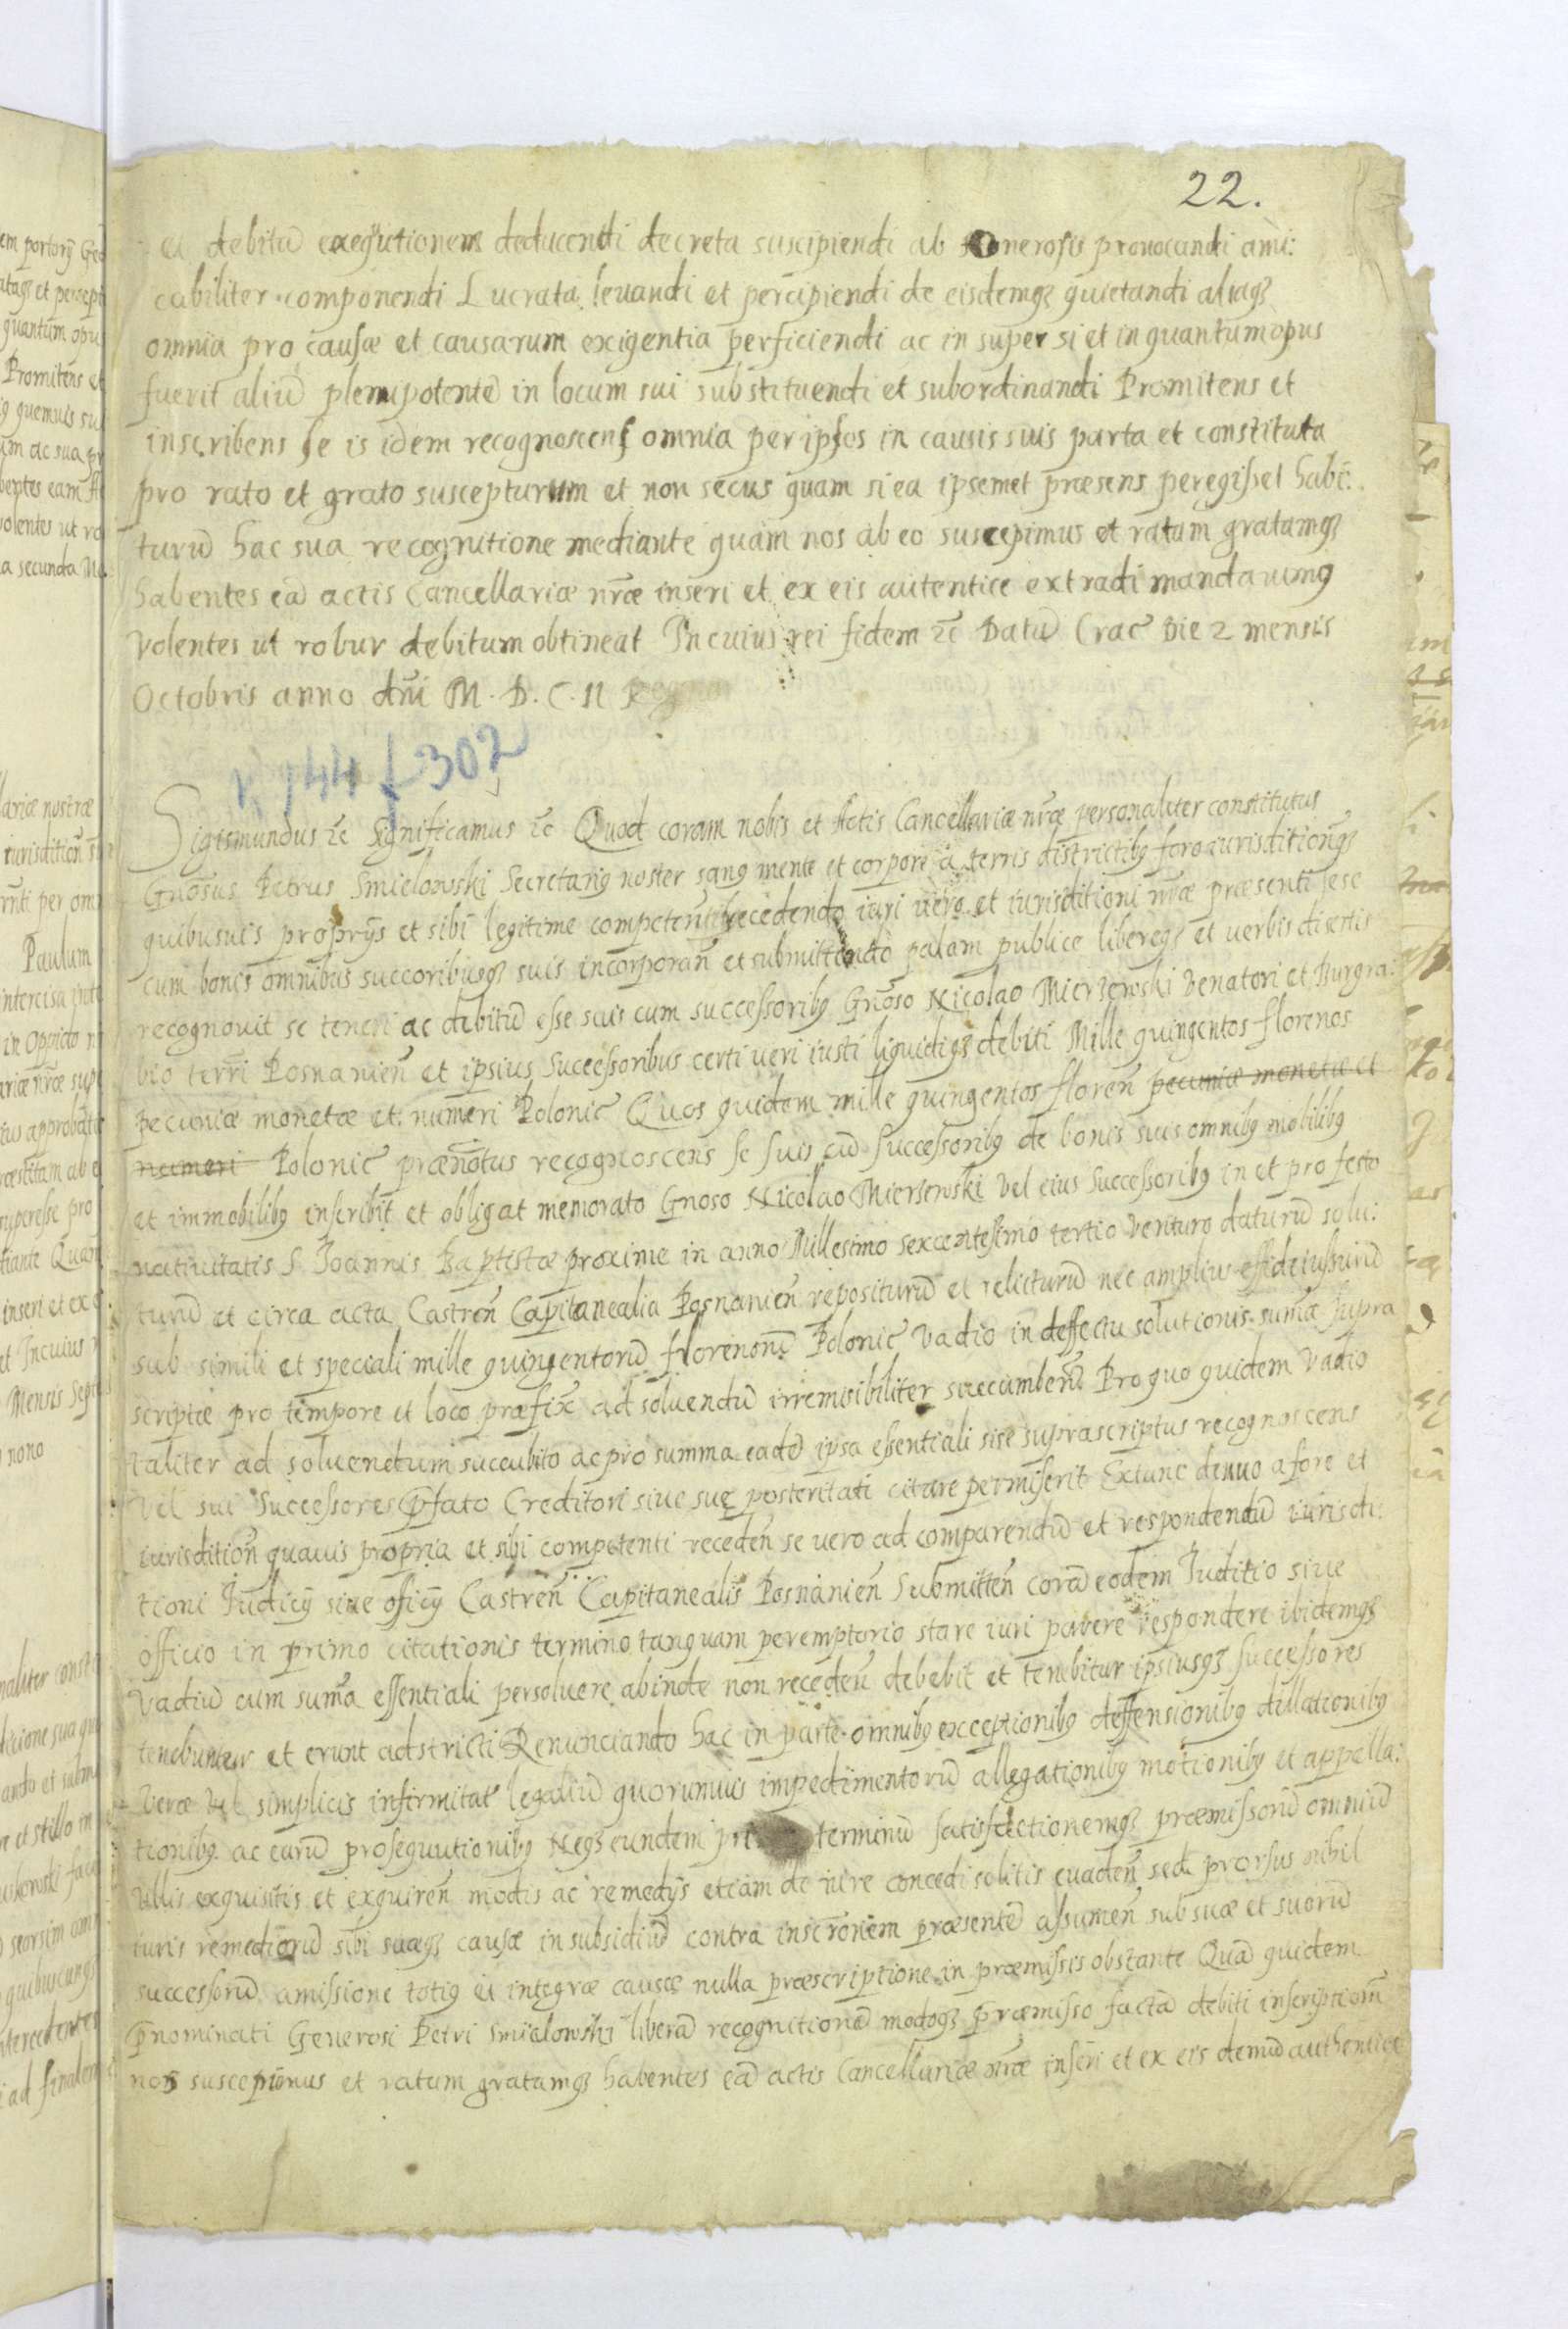 22.
ei debitū exequutionem deducendi decreta suscipiendi ab onerosis prouocandi ami:
cabiliter componendi Lucrata leuandi et percipiendi de eisdemq₃ quietandi aliaq₃
omnia pro causæ et causarum exigentia perficiendi ac in super si et in quantum opus
fuerit aliū plenipotentē in locum sui substituendi et subordinandi Promitens et
inscribens se is idem recognoscens omnia per ipsos in causis suis parta et constituta
pro rato et grato suscepturum et non secus quam si ea ipsemet præsens peregisset habē:
turū hac sua recognitione mediante quam nos ab eo suscepimus et ratam gratamq₃
habentes eā actis Cancellariæ nr̃æ inseri et ex eis autentice extradi mandauimꝯ
Volentes ut robur debitum obtineat In cuius rei fidem ⁊c̃ Datū Crac̃ Die 2 mensis
Octobris anno dñi M. D. C. II Reg
144 f 302
Sigismundus ⁊c̃ Significamus ⁊c̃ Quod coram nobis et Actis Cancellariæ nr̃æ personaliter constitutus
Gnõsus Petrus Smielowski Secretariꝯ noster sanꝯ mente et corpore a terris districtibꝯ foro iurisditionq̃₃
quibusuis proprijs et sibi legitime competen̄tibꝯ recedendo iuri uero et iurisditioni nr̃æ præsenti sese
cum bonis omnibus succoribusq₃ suis incorporan̄ et submittendo palam publice libereq₃ et uerbis disertis
recognouit se teneri ac debitū esse suis cum successoribꝯ Gnõso Nicolao Mierzewski Venatori et Burgra:
bio terrĩ Posnanien̄ et ipsius Successoribus certi ueri iusti liquidiq₃ debiti Mille quingentos florenos
pecuniæ monetæ et numeri Polonic̃ Quos quidem mille quingentos floren̄ pecuniæ monetæ et
numeri Polonic̃ prænõtus recognoscens se suis cū successoribꝯ de bonis suis omnibꝯ mobilibꝯ
et immobilibꝯ inscribit et obligat memorato Gnoso Nicolao Mierzewski Vel eius Successoribꝯ in et pro festo
natiuitatis S. Joannis Baptistæ proxime in anno Millesimo sexcentesimo tertio Venturo daturū solu:
turū et circa acta Castren̄ Capitanealia Posnanien̄ repositurū et relicturū nec amplius effideiussurū
sub simili et speciali mille quingentorū florenorū Polonic̃ Vadio in deffectu solutionis sum̃æ supra
scriptæ pro tempore et loco præfix̃ ad soluendū irremisibiliter succumben̄ Pro quo quidem Vadio
taliter ad soluendum succubito ac pro summa eadē ipsa essentiali si se suprascriptus recognoscens
Vel sui Successores p̃fato Creditori siue suę posteritati citare permiserit Extunc denuo a fore et
iurisdition̄ quauis propria et sibi competenti receden̄ se uero ad comparendū et respondendū iurisdi:
tioni Judicij siue oficij Castren̄ Capitanealis Posnanien̄ Submitten̄ corā eodem Juditio siue
officio in primo citationis termino tanquam peremptorio stare iuri parere respondere ibidemq₃
Vadiū cum sum̃a essentiali persoluere abinde non receden̄ debebit et tenebitur ipsiusq₃ successores
tenebuntur et erunt adstricti Renunciando hac in parte omnibꝯ exceptionibꝯ deffensionibꝯ dillationibꝯ
Veræ Vel simplicis infirmitat̃ legaliū quorumuis impedimentorū allegationibꝯ motionibꝯ et appella:
tionibꝯ ac earū prosequutionibꝯ Neq₃ eundem terminū satisfactionemq₃ præmissorū omniū
Ullis exquisitis et exquiren̄ modis ac remedijs etiam de iure concedi solitis euaden̄ sed prorsus nihil
iuris remediorū sibi suæq₃ causæ in subsidiū contra inscr̃onem præsentē assumen̄ sub suæ et suorū
successorū amissione totiꝯ et integræ causæ nulla præscriptione in præmissis obstante Quā quidem
p̃nominati Generosi Petri Smielowski liberā recognitionē modoq₃ præmisso factā debiti inscriptionē
nos suscepimus et ratum gratamq₃ habentes eā actis Cancellariæ nr̃æ inseri et ex eis demū authentice